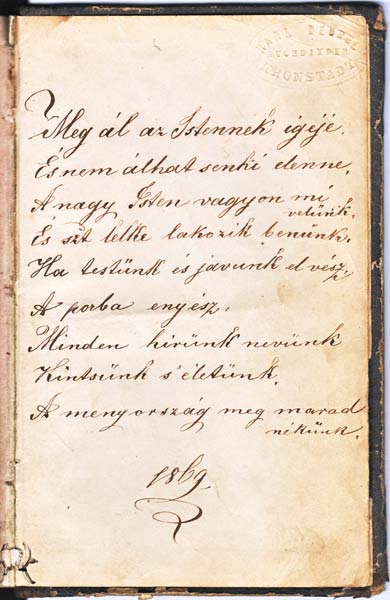 KARL
BUCHBINDER
KRONSTADT
Meg ál az Istennek igéje.
És nem álhat senki elenne.
A nagy Isten vagyon mi
velünk.
És szt lelke lakozik benünk.
Ha testünk és javunk el vész,
A porba enyész,
Minden hirünk nevünk
Kintsünk s' életünk.
A menyország meg marad
nékünk.
1869